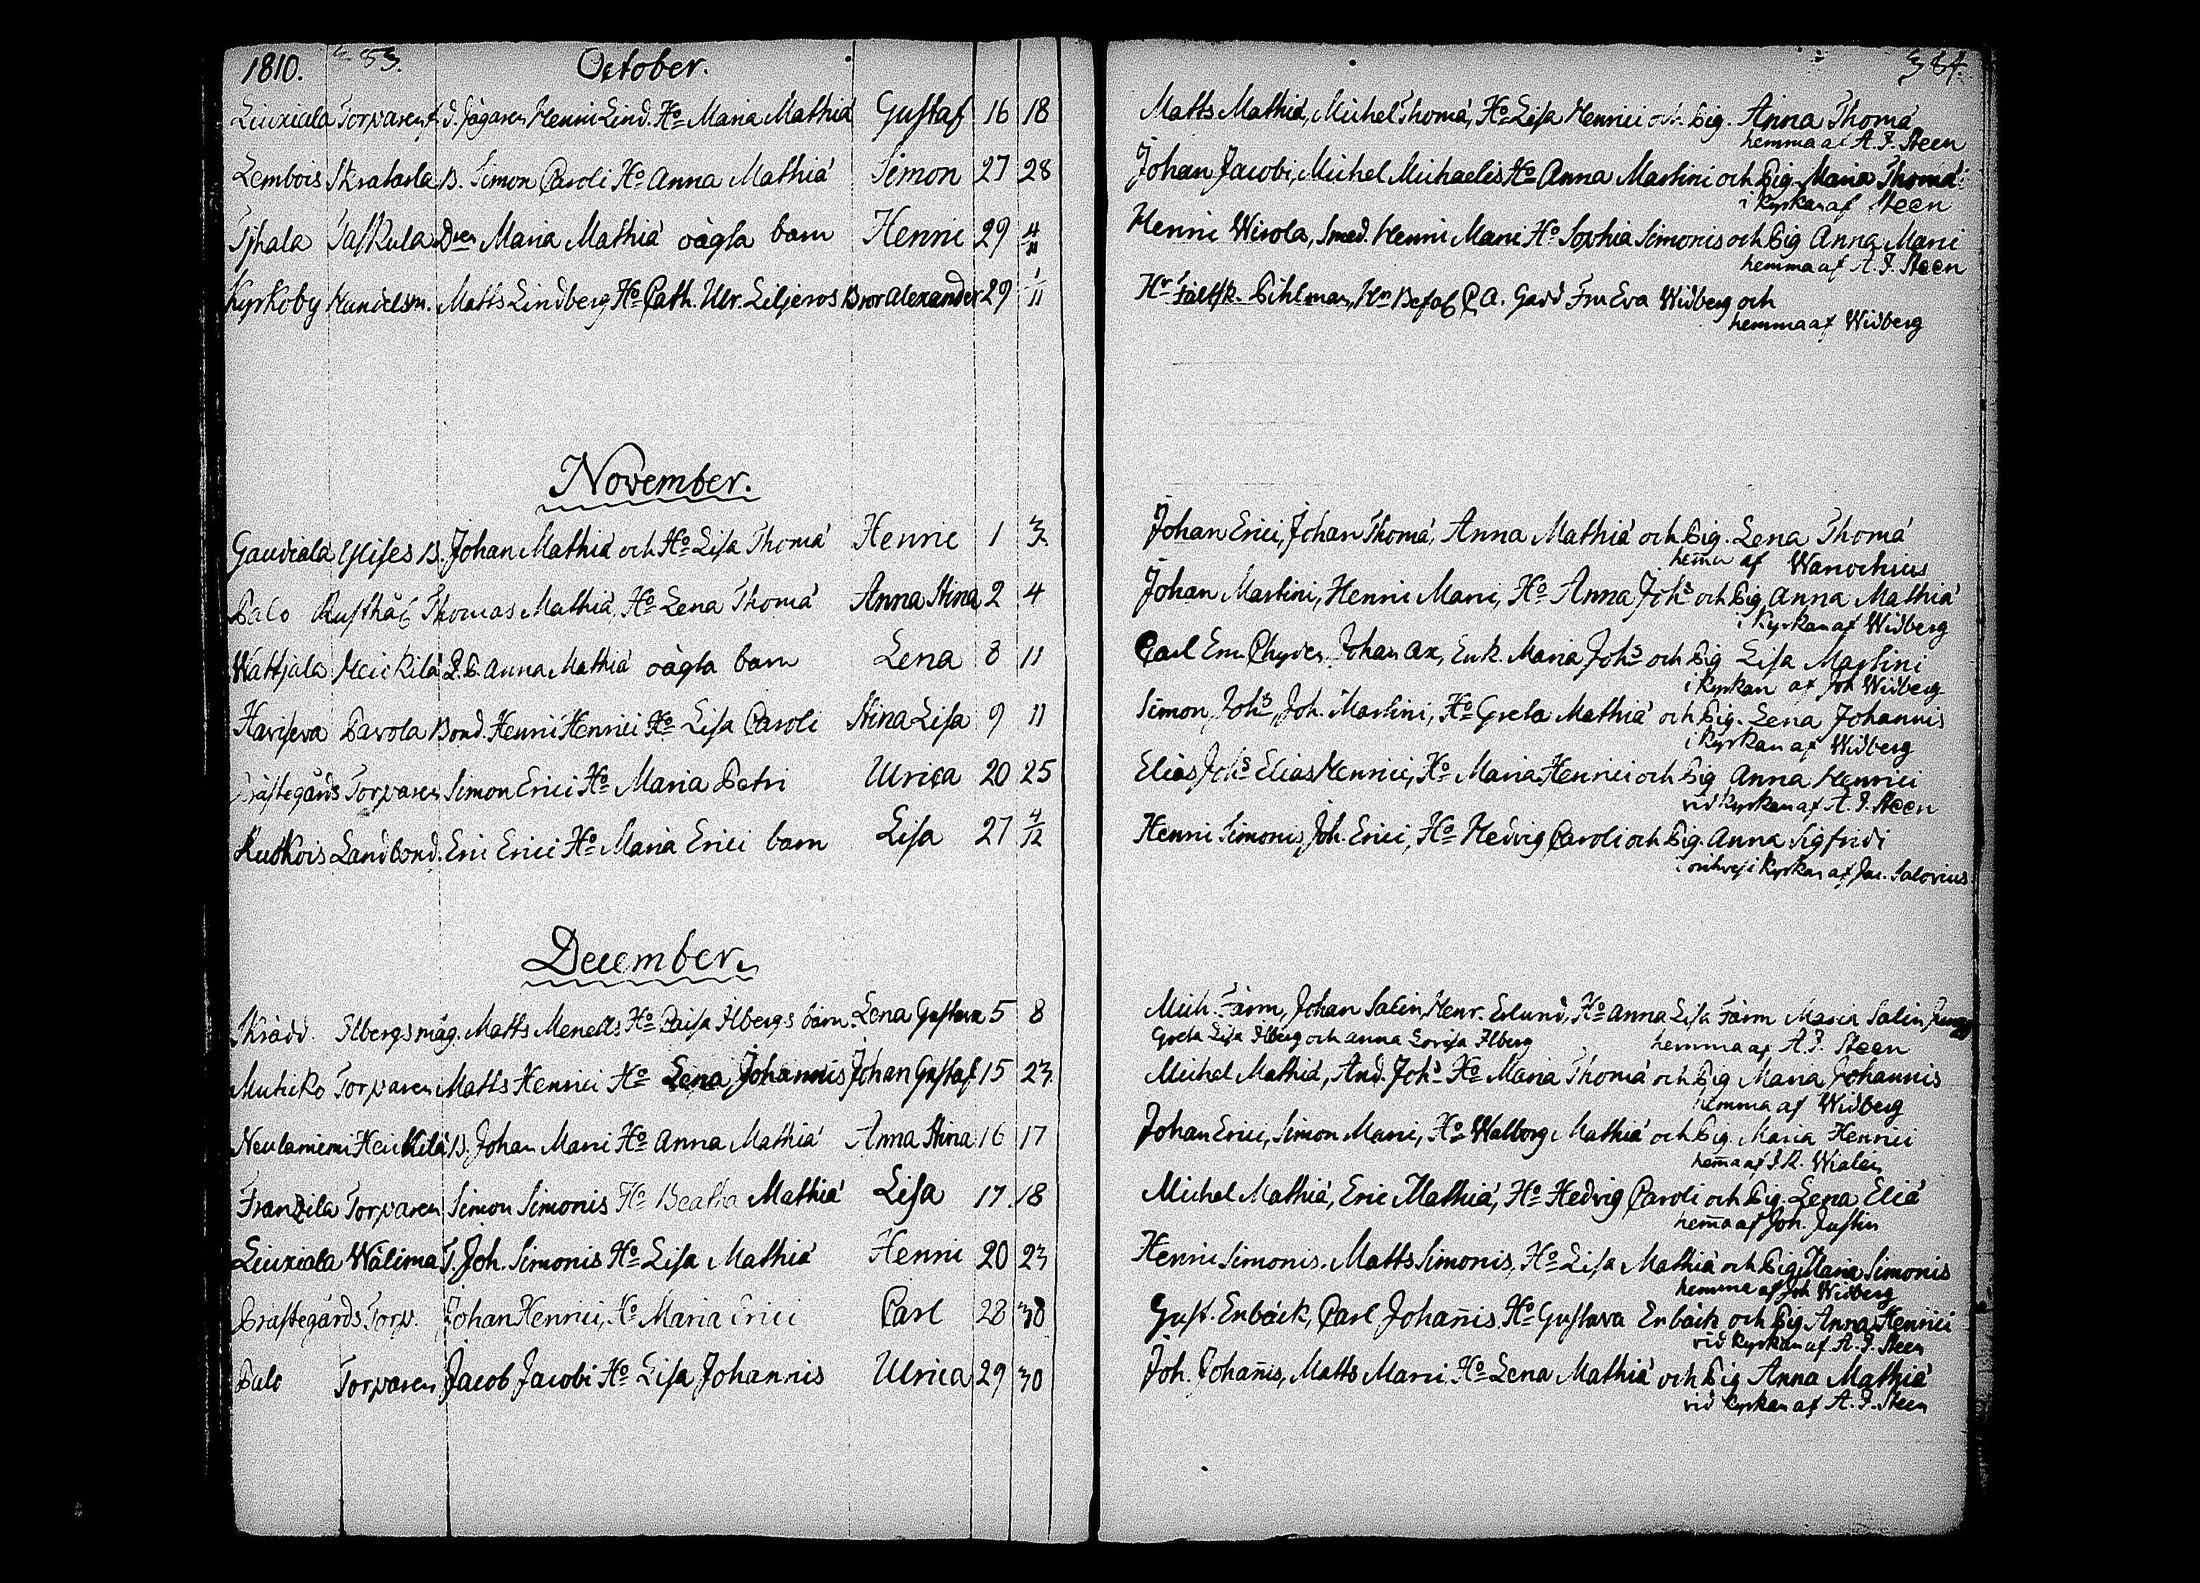 1810. 383. October.
Liuxiala Torparen f. d. Jägaren Henric Lind. Ho Maria Mathiæ Gustaf 16 18
Lembois Skratarla B. Simon Caroli Ho Anna Mathiæ Simon 27 28
Tjhala Taskula Dren Maria Mathiæ oägta barn Henric 29 4/11
Kyrkoby Handelsm. Matts Lindberg, Ho Cath. Ulr. Liljeros Bror Alexander 29 1/11
November.
Gaudiala Ylises B. Johan Mathiæ och Ho Lisa Thomæ Henric 1 3
Palo Rusthål. Thomas Mathiæ, Ho Lena Thomæ Anna Stina 2 4
Wattjala Heickilä P. Anna Mathiæ oägta barn Lena 8 11
Haviseva Pavola Bond. Henric Henrici Ho Lisa Caroli Stina Lisa 9 11
Prästegårds Torparen Simon Erici Ho Maria Petri Ulrica 20 25
Ruokois Landbond. Eric Erici Ho Maria Erici barn Lisa 27 4/12
December.
Skrädd. Ilbergs måg. Matts Menells Ho Caisa Ilbergs barn Lena Gustava 5 8
Muticko Torparen Matts Henrici Ho Lena Johannis Johan Gustaf 15 23
Neulaniemi Heickilä B. Johan Marci Ho Anna Mathiæ Anna Stina 16 17
Franzila Torparen Simon Simonis Ho Beatha Mathiæ Lisa 17. 18
Liuxiala Wälimaa T. Joh. Simonis Ho Lisa Mathiæ Henric 20 23
Prästegårds Torp. Johan Henrici, Ho Maria Erici Carl 28 30
Palo Torparen Jacob Jacobi Ho Lisa Johannis Ulrica 29 30
384.
Matts Mathiæ, Michel Thomæ, Ho Lisa Henrici och Pig. Anna Thomæ
hemma af A. J. Steen
Johan Jacobi, Michel Michaelis Ho Anna Martini och Pig. Maria Thomæ
i Kyrkan af Steen
Henric Wirola, Smed. Henric Marci Ho Sophia Simonis och Pig Anna Marci
hemma af A. J. Steen
Hr Fältsk. Pihlman, Hr Befalh C. A. Gadd Fru Eva Widberg och
hemma af Widberg
Johan Erici, Johan Thomæ, Anna Mathiæ och Pig. Lena Thomæ
hema af Wanochius
Johan Martini, Henric Marci, Ho Anna Johs och Pig Anna Mathiæ
i Kyrkan af Widberg
Carl Em. Chyder, Johan Ax, Enk. Maria Johs och Pig Lisa Martini
i Kyrkan af Joh Widberg
Simon Johs, Joh. Martini, Ho Greta Mathiæ och Pig. Lena Johannis
i Kyrkan af Widberg
Elias Johs Elias Henrici, Ho Maria Henrici och Pig Anna Henrici
vid Kyrkan af A. J. Steen
Henric Simonis, Joh. Erici, Ho Hedvig Caroli och Pig. Anna Sigfridi
i Kyrkan af Jac. Salovius
Mich. Färm, Johan Salin, Henr. Edlund, Ho Anna Lisa Färm Maria Salin
Greta Lisa Ilberg och Anna Lovisa Ilberg hemma af A. J. Steen
Michel Mathiæ, And. Johs Ho Maria Thomæ och Pig Maria Johannis
hemma af Widberg
Johan Erici, Simon Marci, Ho Walborg Mathiæ och Pig. Maria Henrici
hema af J R. Wialén
Michel Mathiæ, Eric Mathiæ, Ho Hedvig Caroli och Pig. Lena Eliæ
hema af Joh. Justin
Henric Simonis, Matts Simonis, Ho Lisa Mathiæ och Pig Maria Simonis
hemma af Joh Widberg
Gust. Enbäck, Carl Johanis Ho Gustava Enbäck och Pig Anna Henrici
vid Kyrkan af A. J. Steen
Joh. Johanis, Matts Marci Ho Lena Mathiæ och Pig Anna Mathiæ
vid Kyrkan af A. J. Steen